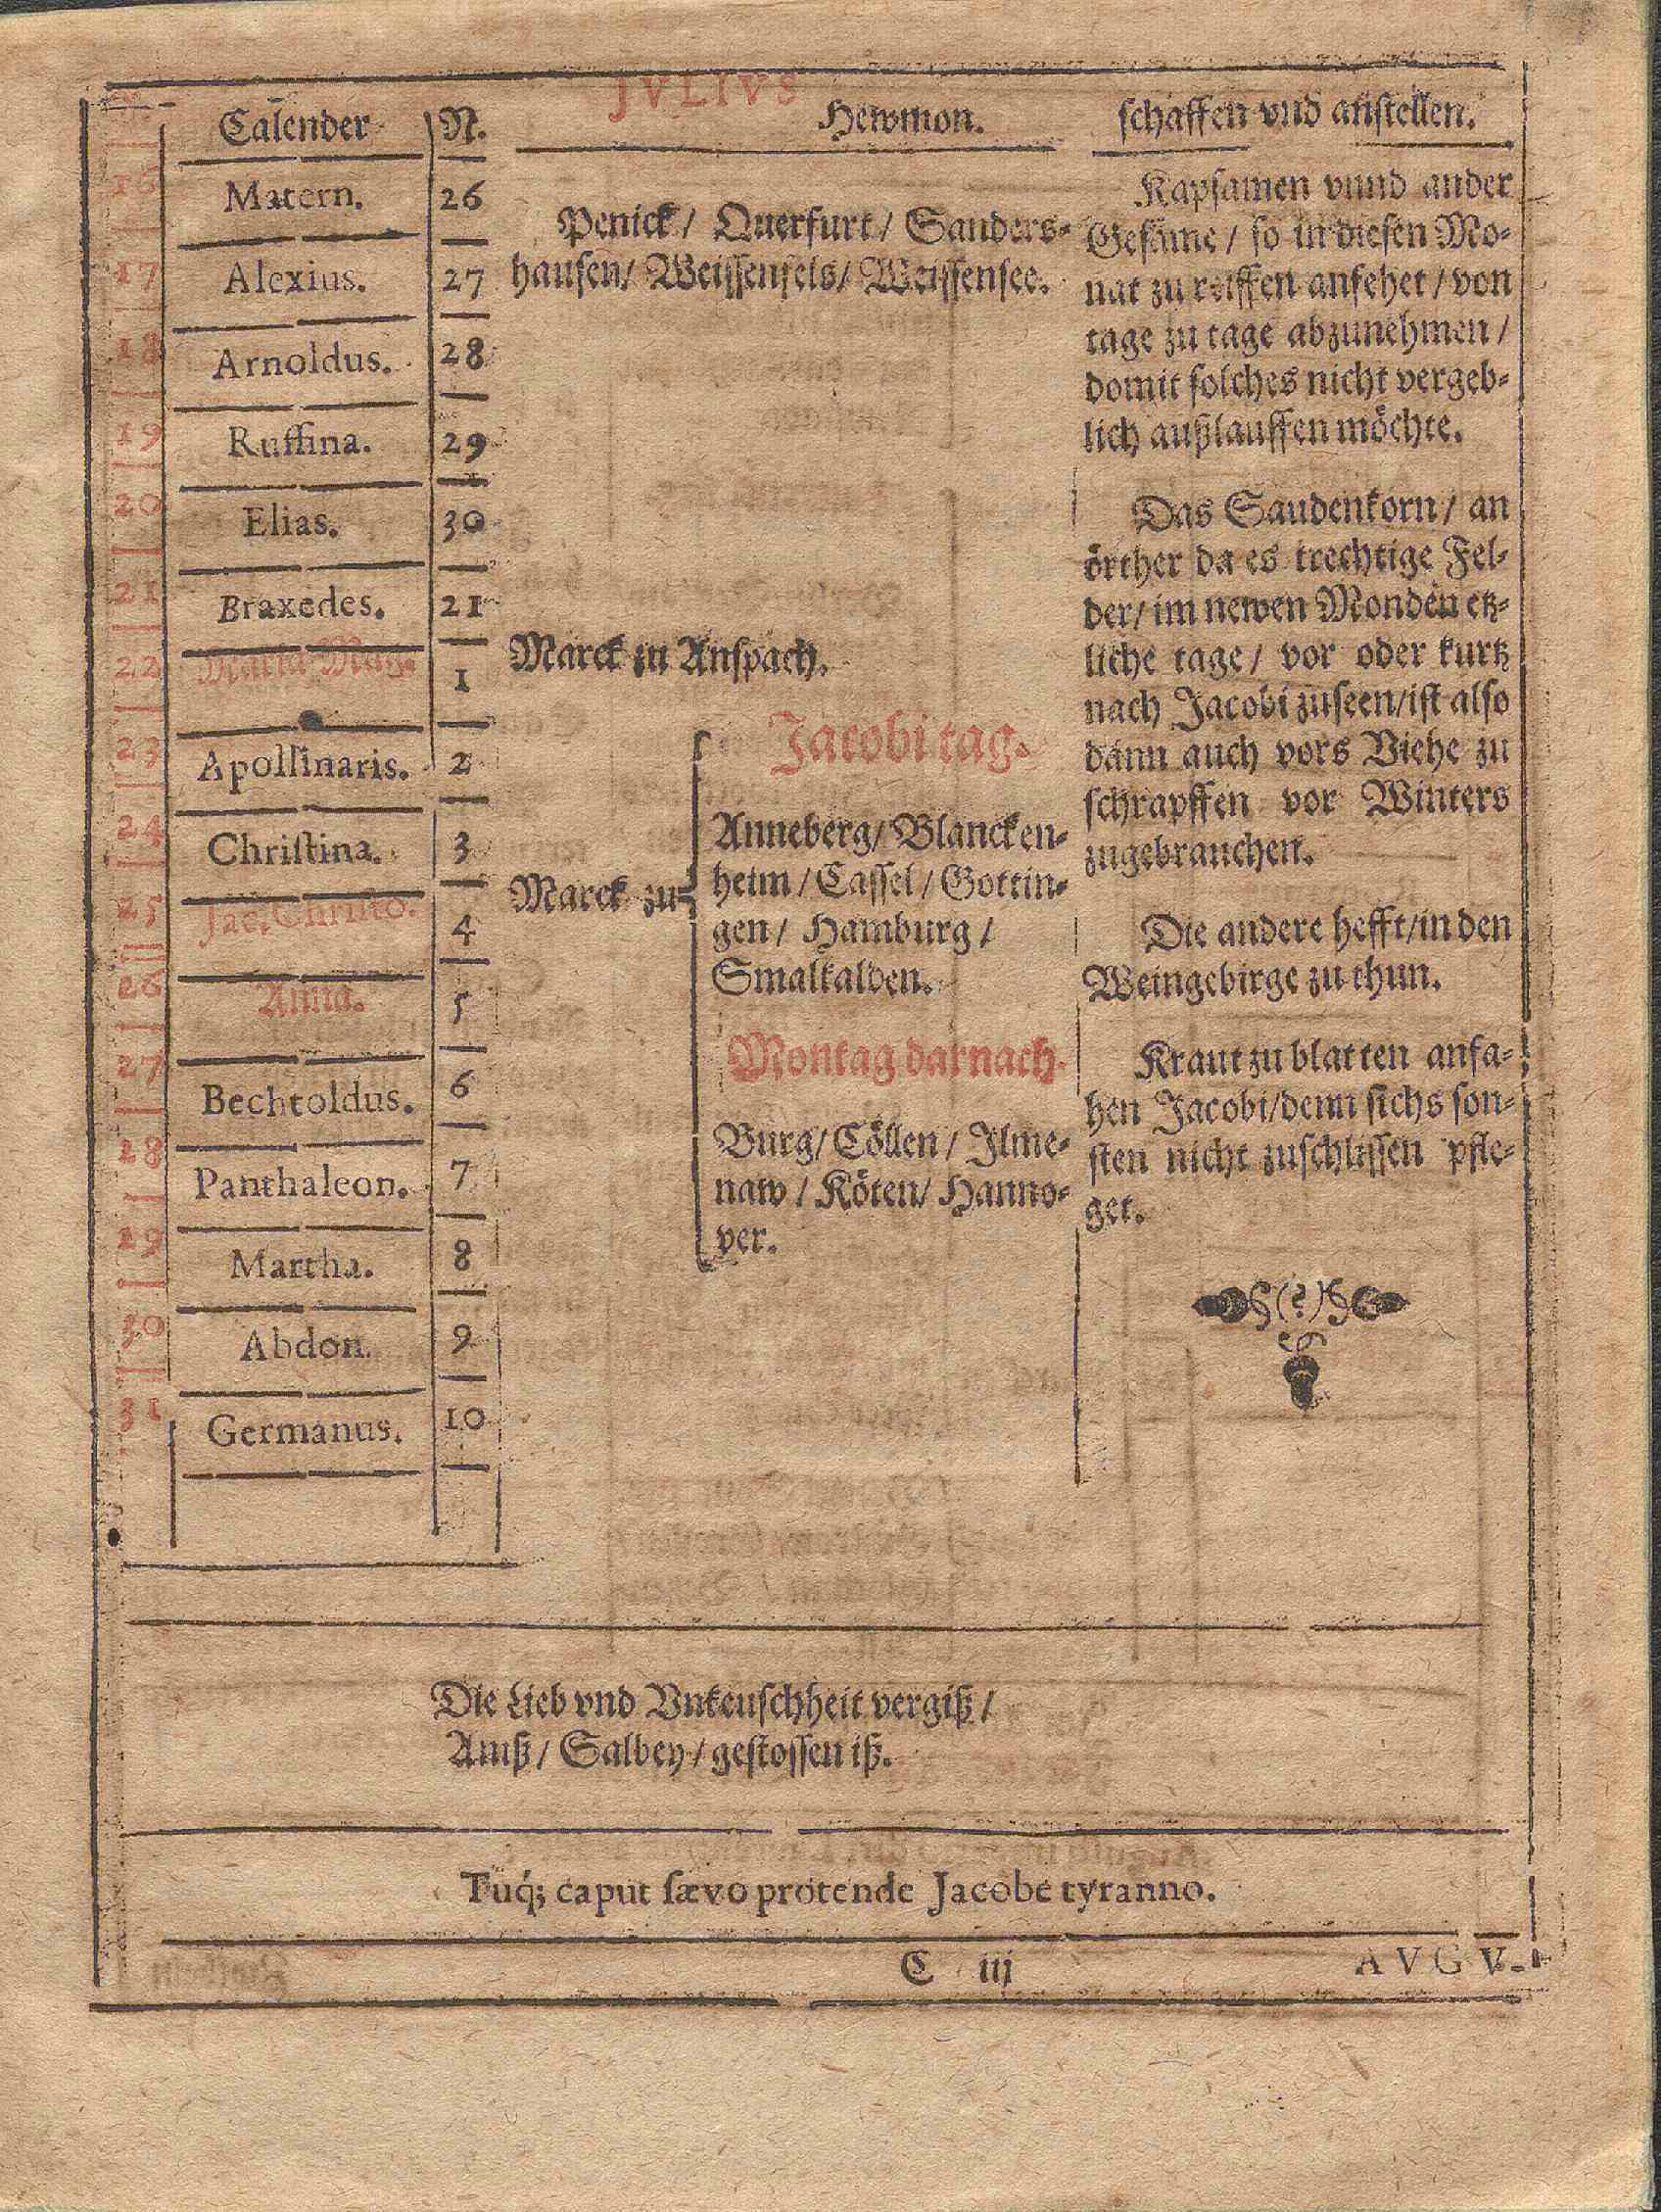 JVLIVS
Calender N. Hewmon. schaffen vnd anstellen.
16 Matern. 26
17 Alexius. 27
18 Arnoldus. 28
19 Ruffina. 29
20 Elias. 30
21 Braxedes. 21
22 Maria Mag. 1
23 Apollinaris. 2
24 Christina. 3
25 Jac. Christo. 4
26 Anna. 5
27 Bechtoldus. 6
28 Panthaleon. 7
29 Martha. 8
30 Abdon. 9
31 Germanus. 10
Penick / Querfurt / Sanders-
hausen / Weissenfels / Weissensee.
Marck zu Anspach.
Marck zu
Jacobi tag.
Anneberg / Blancken-
heim / Cassel / Gottin-
gen / Hamburg /
Smalkalden.
Montag darnach.
Burg / Cöllen / Ilme-
naw / Köten / Hanno-
ver.
Rapsamen vnnd ander
Gesäme / so in diesen Mo-
nat zu reiffen anfehet / von
tage zu tage abzunehmen /
domit solches nicht vergeb-
lich außlauffen möchte.
Das Staudenkorn / an
örther da es trechtige Fel-
der / im newen Monden etz-
liche tage / vor oder kurtz
nach Jacobi zuseen / ist also
dann auch vors Viehe zu
schrapffen vor Winters
zugebrauchen.
Die andere hefft / in den
Weingebirge zu thun.
Kraut zu blatten anfa-
hen Jacobi / denn sichs son-
sten nicht zuschlissen pfle-
get.
Die Lieb vnd Vnkeuschheit vergiß /
Amß / Salbey / gestossen iß.
Tuq́; caput sævo protende Jacobe tyranno.
C iij AVGV-